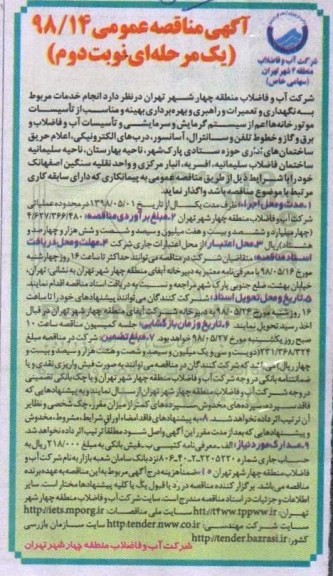 آگهی مناقصه عمومی ۹۸/۱۴
(یک مرحله‌ای نوبت دوم)
شرکت آب و فاضلاب
منطقه ۴ شهر تهران
(سهامی خاص)
شرکت آب و فاضلاب منطقه چهار شهر تهران در نظر دارد انجام خدمات مربوط
به نگهداری و تعمیرات و راهبری و بهره‌برداری بهینه و مناسب از تأسیسات
موتورخانه‌ها اعم از سیستم گرمایش و سرمایشی و تأسیسات آب و فاضلاب و
برق و گاز و خطوط تلفن و سانترال، آسانسور، درب‌های الکترونیکی، اعلام حریق
ساختمان‌های اداری حوزه ستادی پارک‌شهر، ناحیه بهارستان، ناحیه سلیمانیه
ساختمان فاضلاب سلیمانیه، افسریه، انبار مرکزی و واحد نقلیه سنگین اصفهانک
خود را با شرایط ذیل از طریق مناقصه عمومی به پیمانکاری که دارای سابقه کاری
مرتبط با موضوع مناقصه باشد واگذار نماید.
۱. مدت و محل اجرا: ظرف مدت یکسال از تاریخ ۱۳۹۸/۰۵/۰۱ در محدوده عملیاتی
شرکت آب و فاضلاب منطقه چهار شهر تهران ۲. مبلغ برآوردی مناقصه: ۴/۶۲۷/۳۶۶/۴۸۰
(چهار میلیارد و ششصد و بیست و هفت میلیون و سیصد و شصت و شش هزار و چهارصد و
هشتاد) ریال ۳. محل اعتبار: از محل اعتبارات جاری شرکت ۴. مهلت و محل دریافت
اسناد مناقصه: متقاضیان شرکت در مناقصه می‌توانند حداکثر تا ساعت ۱۶ روز چهارشنبه
مورخ ۹۸/۰۵/۱۶ با معرفی‌نامه معتبر به دبیرخانه آبفای منطقه چهار شهر تهران به نشانی: تهران،
خیابان بهشت، ضلع جنوبی پارک شهر مراجعه و نسبت به دریافت اسناد مناقصه اقدام نمایند
۵. تاریخ و محل تحویل اسناد: شرکت کنندگان می‌توانند پیشنهادهای خود را تا ساعت
۱۶ روز شنبه مورخ ۹۸/۰۵/۲۶ به دبیرخانه شرکت آبفای منطقه چهار شهر تهران در قبال
اخذ رسید تحویل نمایند. ۶. تاریخ و زمان بازگشایی: جلسه کمیسیون مناقصه ساعت ۱۰
صبح روز یکشنبه مورخ ۹۸/۰۵/۲۷ خواهد بود. ۷. مبلغ تضمین: شرکت در مناقصه مبلغ
۲۳۱/۳۶۸/۳۲۴ (دویست و سی و یک میلیون و سیصد و شصت و هشت هزار و سیصد و بیست و
چهار ریال) می‌باشد که شرکت کنندگان در مناقصه می‌توانند به صورت فیش واریزی نقدی و یا
ضمانتنامه بانکی در وجه شرکت آب و فاضلاب منطقه چهار شهر تهران و یا چک بانکی تضمینی
در وجه شرکت آب و فاضلاب منطقه چهار شهر تهران ارسال نمایند و به پیشنهادهایی که
فاقد سپرده، سپرده‌های مخدوش، سپرده‌های کمتر از میزان مقرر، چک شخصی و نظایر
آن ترتیب اثر داده نخواهد شد. ۸. به پیشنهادهای فاقد امضا، اوراق شرایط، مشروط، مخدوش
و پیشنهادهایی که بعد از مدت مقرر این آگهی واصل شود مطلقا ترتیب اثر داده نخواهد شد.
۹. مدارک مورد نیاز: الف- معرفی‌نامه کتبی ب- فیش بانکی به مبلغ ۲۱۸/۰۰۰ ریال به
حساب جاری شماره نزد بانک سامان شعبه بازار به نام شرکت آب و
فاضلاب منطقه چهار شهر تهران ۱۰- ضمنا هزینه درج آگهی مربوط به این مناقصه به عهده برنده
مناقصه می‌باشد. برگزار کننده مناقصه در رد یا قبول یک یا کلیه پیشنهادها مختار است. سایر
اطلاعات و جزئیات در اسناد مناقصه مندرج است. سایت شرکت آب و فاضلاب منطقه چهار شهر
تهران http://t4ww.tppww.ir سایت ملی مناقصات: http://iets.mporg.ir
سایت شرکت مهندسی: http:tender.nww.co.ir سایت سازمان بازرسی
کشور: http://tender.bazrasi.ir
شرکت آب و فاضلاب منطقه چهار شهر تهران